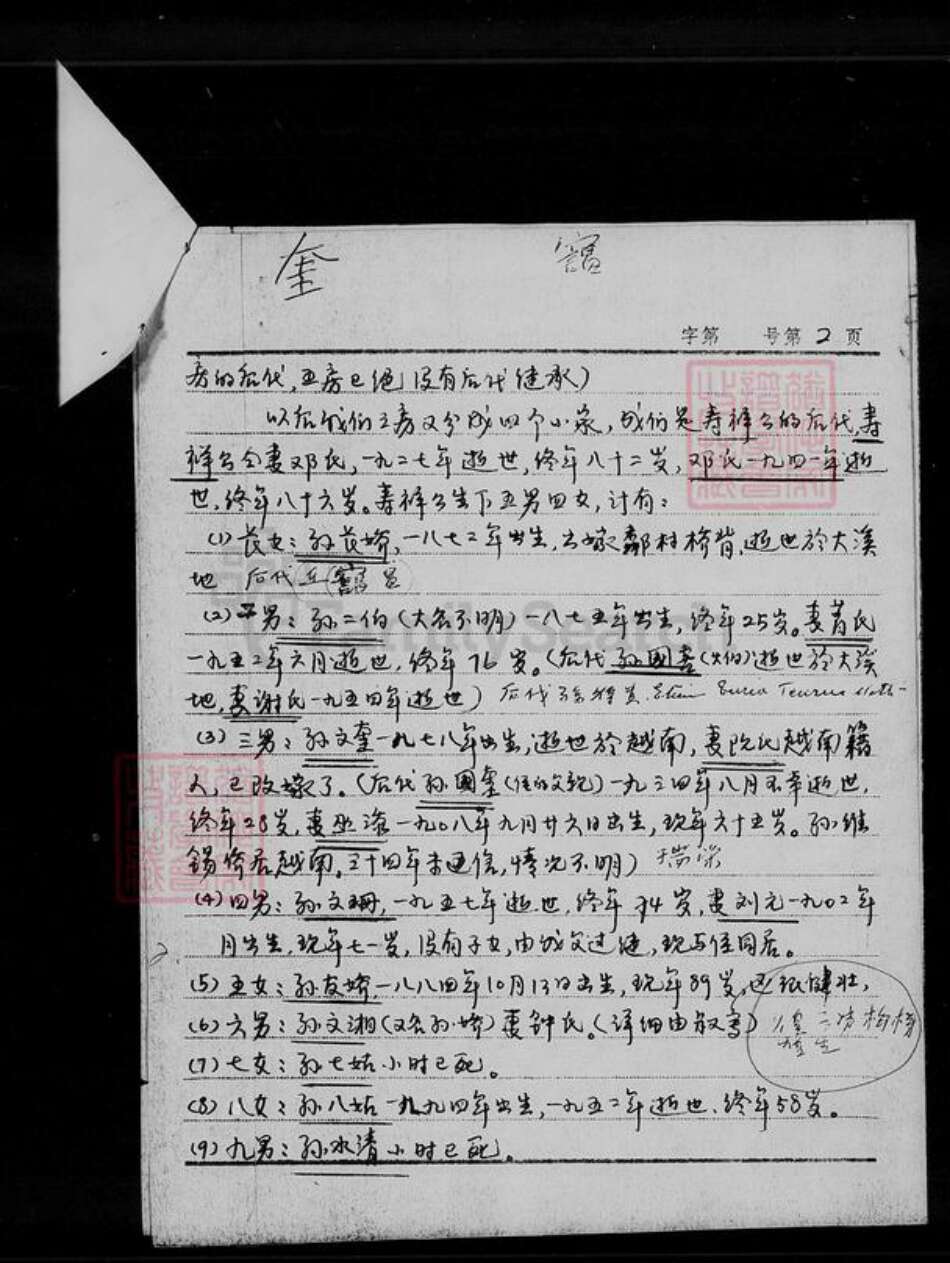 奎
字第 号第 2 页
房的后代，五房已绝，没有后代继承）
以后我们五房又分成四个小家，我们是寿祥公的后代，寿
祥公仝妻邓氏，一九二七年逝世，终年八十二岁，邓氏一九四一年逝
世，终年八十六岁。寿祥公生下五男四女，计有：
(1) 长女：孙茛娇，一八七二年出生，出嫁鄱村桥背，逝世於大溪
地 后代丘
(2) 二男：孙二伯（大名不明）一八七五年出生，终年25岁。妻芎氏
一九五二年六月逝世，终年76岁。（后代孙國喜（火伯）逝世於大溪
地，妻谢氏一九五四年逝世）后代孫
(3) 三男：孙文奎一九七八年出生，逝世於越南，妻阮氏越南籍
人，已改嫁了。（后代孙國奎（住的父親）一九三四年八月不幸逝世，
终年28岁，妻巫添一九〇八年九月廿六日出生，现年六十五岁。孙维
錫侨居越南，三十四年未通信，情况不明）
(4) 四男：孙文珊，一九五七年逝世，终年74岁，妻刘元一九〇二年
月出生，现年七一岁，没有子女，由城父过继，现与侄同居。
(5) 五女：孙友娇，一八八四年10月13日出生，现年89岁，还很健壮，
(6) 六男：孙文湘（又名孙娇）妻钟氏。（详细由叙寄）
(7) 七女：孙七姑 小时已死。
(8) 八女：孙八姑 一九九四年出生，一九五二年逝世，终年58岁。
(9) 九男：孙水清 小时已死。